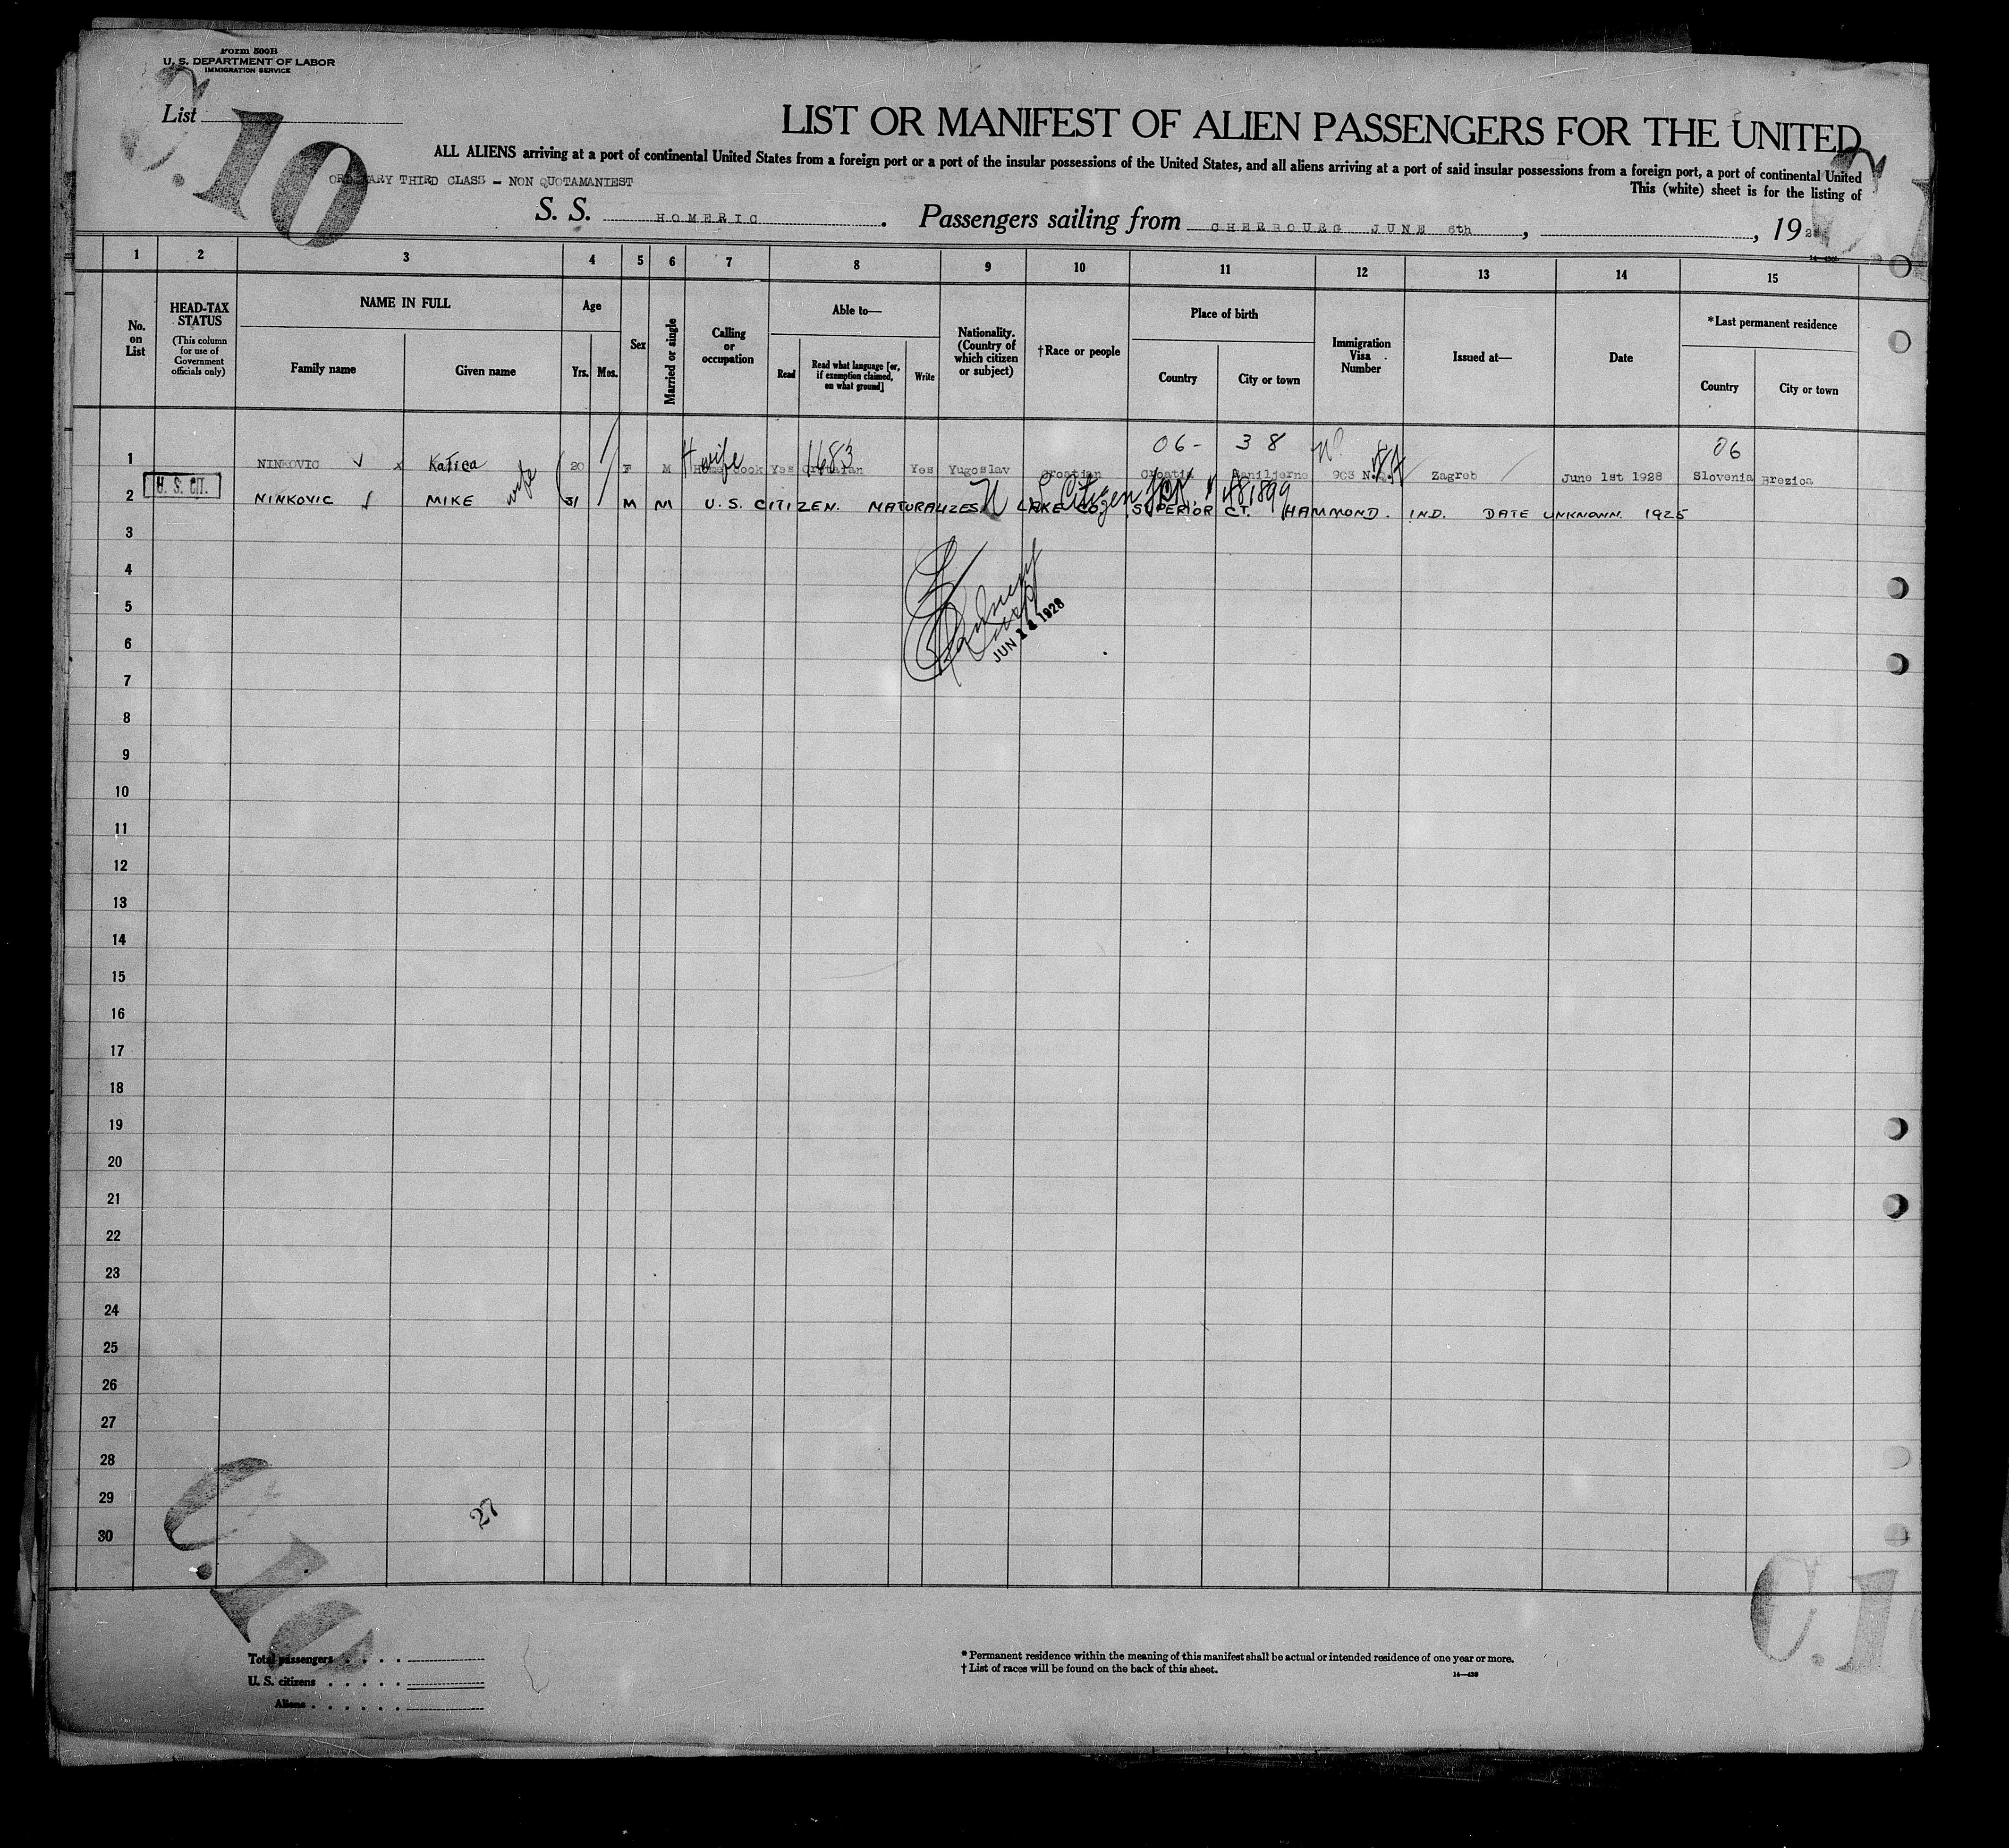 Form 500B
U. S. DEPARTMENT OF LABOR
IMMIGRATION SERVICE
List
C.10
LIST OR MANIFEST OF ALIEN PASSENGERS FOR THE UNITED
ALL ALIENS arriving at a port of continental United States from a foreign port or a port of the insular possessions of the United States, and all aliens arriving at a port of said insular possessions from a foreign port, a port of continental United
This (white) sheet is for the listing of
ORDINARY THIRD CLASS - NON QUOTAMANIEST
S. S. HOMERIC. Passengers sailing from CHERBOURG JUNE 6th, , 19
1 2 3 4 5 6 7 8 9 10 11 12 13 14 15
No. on List
HEAD-TAX STATUS
(This column for use of Government officials only)
NAME IN FULL
Family name Given name
Age
Yrs. Mos.
Sex
Married or single
Calling or occupation
Able to—
Read
Read what language [or, if exemption claimed, on what ground]
Write
Nationality. (Country of which citizen or subject)
†Race or people
Place of birth
Country City or town
Immigration Visa Number
Issued at—
Date
*Last permanent residence
Country City or town
06- 38 06
1 NINKOVIC √ x Katica wife 20 F M H wife cook Yes 1683 Croatian Yes Yugoslav Croatian Croatia 903 N.Q. Zagreb June 1st 1928 Slovenia Brezica
U. S. CIT.
2 NINKOVIC √ MIKE 31 M M U.S. CITIZEN. NATURALIZES LAKE CO. SUPERIOR CT. HAMMOND. IND. DATE UNKNOWN. 1925
Citizen 481899
3
4
5
6
JUN 14 1928
7
8
9
10
11
12
13
14
15
16
17
18
19
20
21
22
23
24
25
26
27
28
29
30
27
C.10
C.1
Total passengers
U. S. citizens
Aliens
* Permanent residence within the meaning of this manifest shall be actual or intended residence of one year or more.
† List of races will be found on the back of this sheet.
14—430